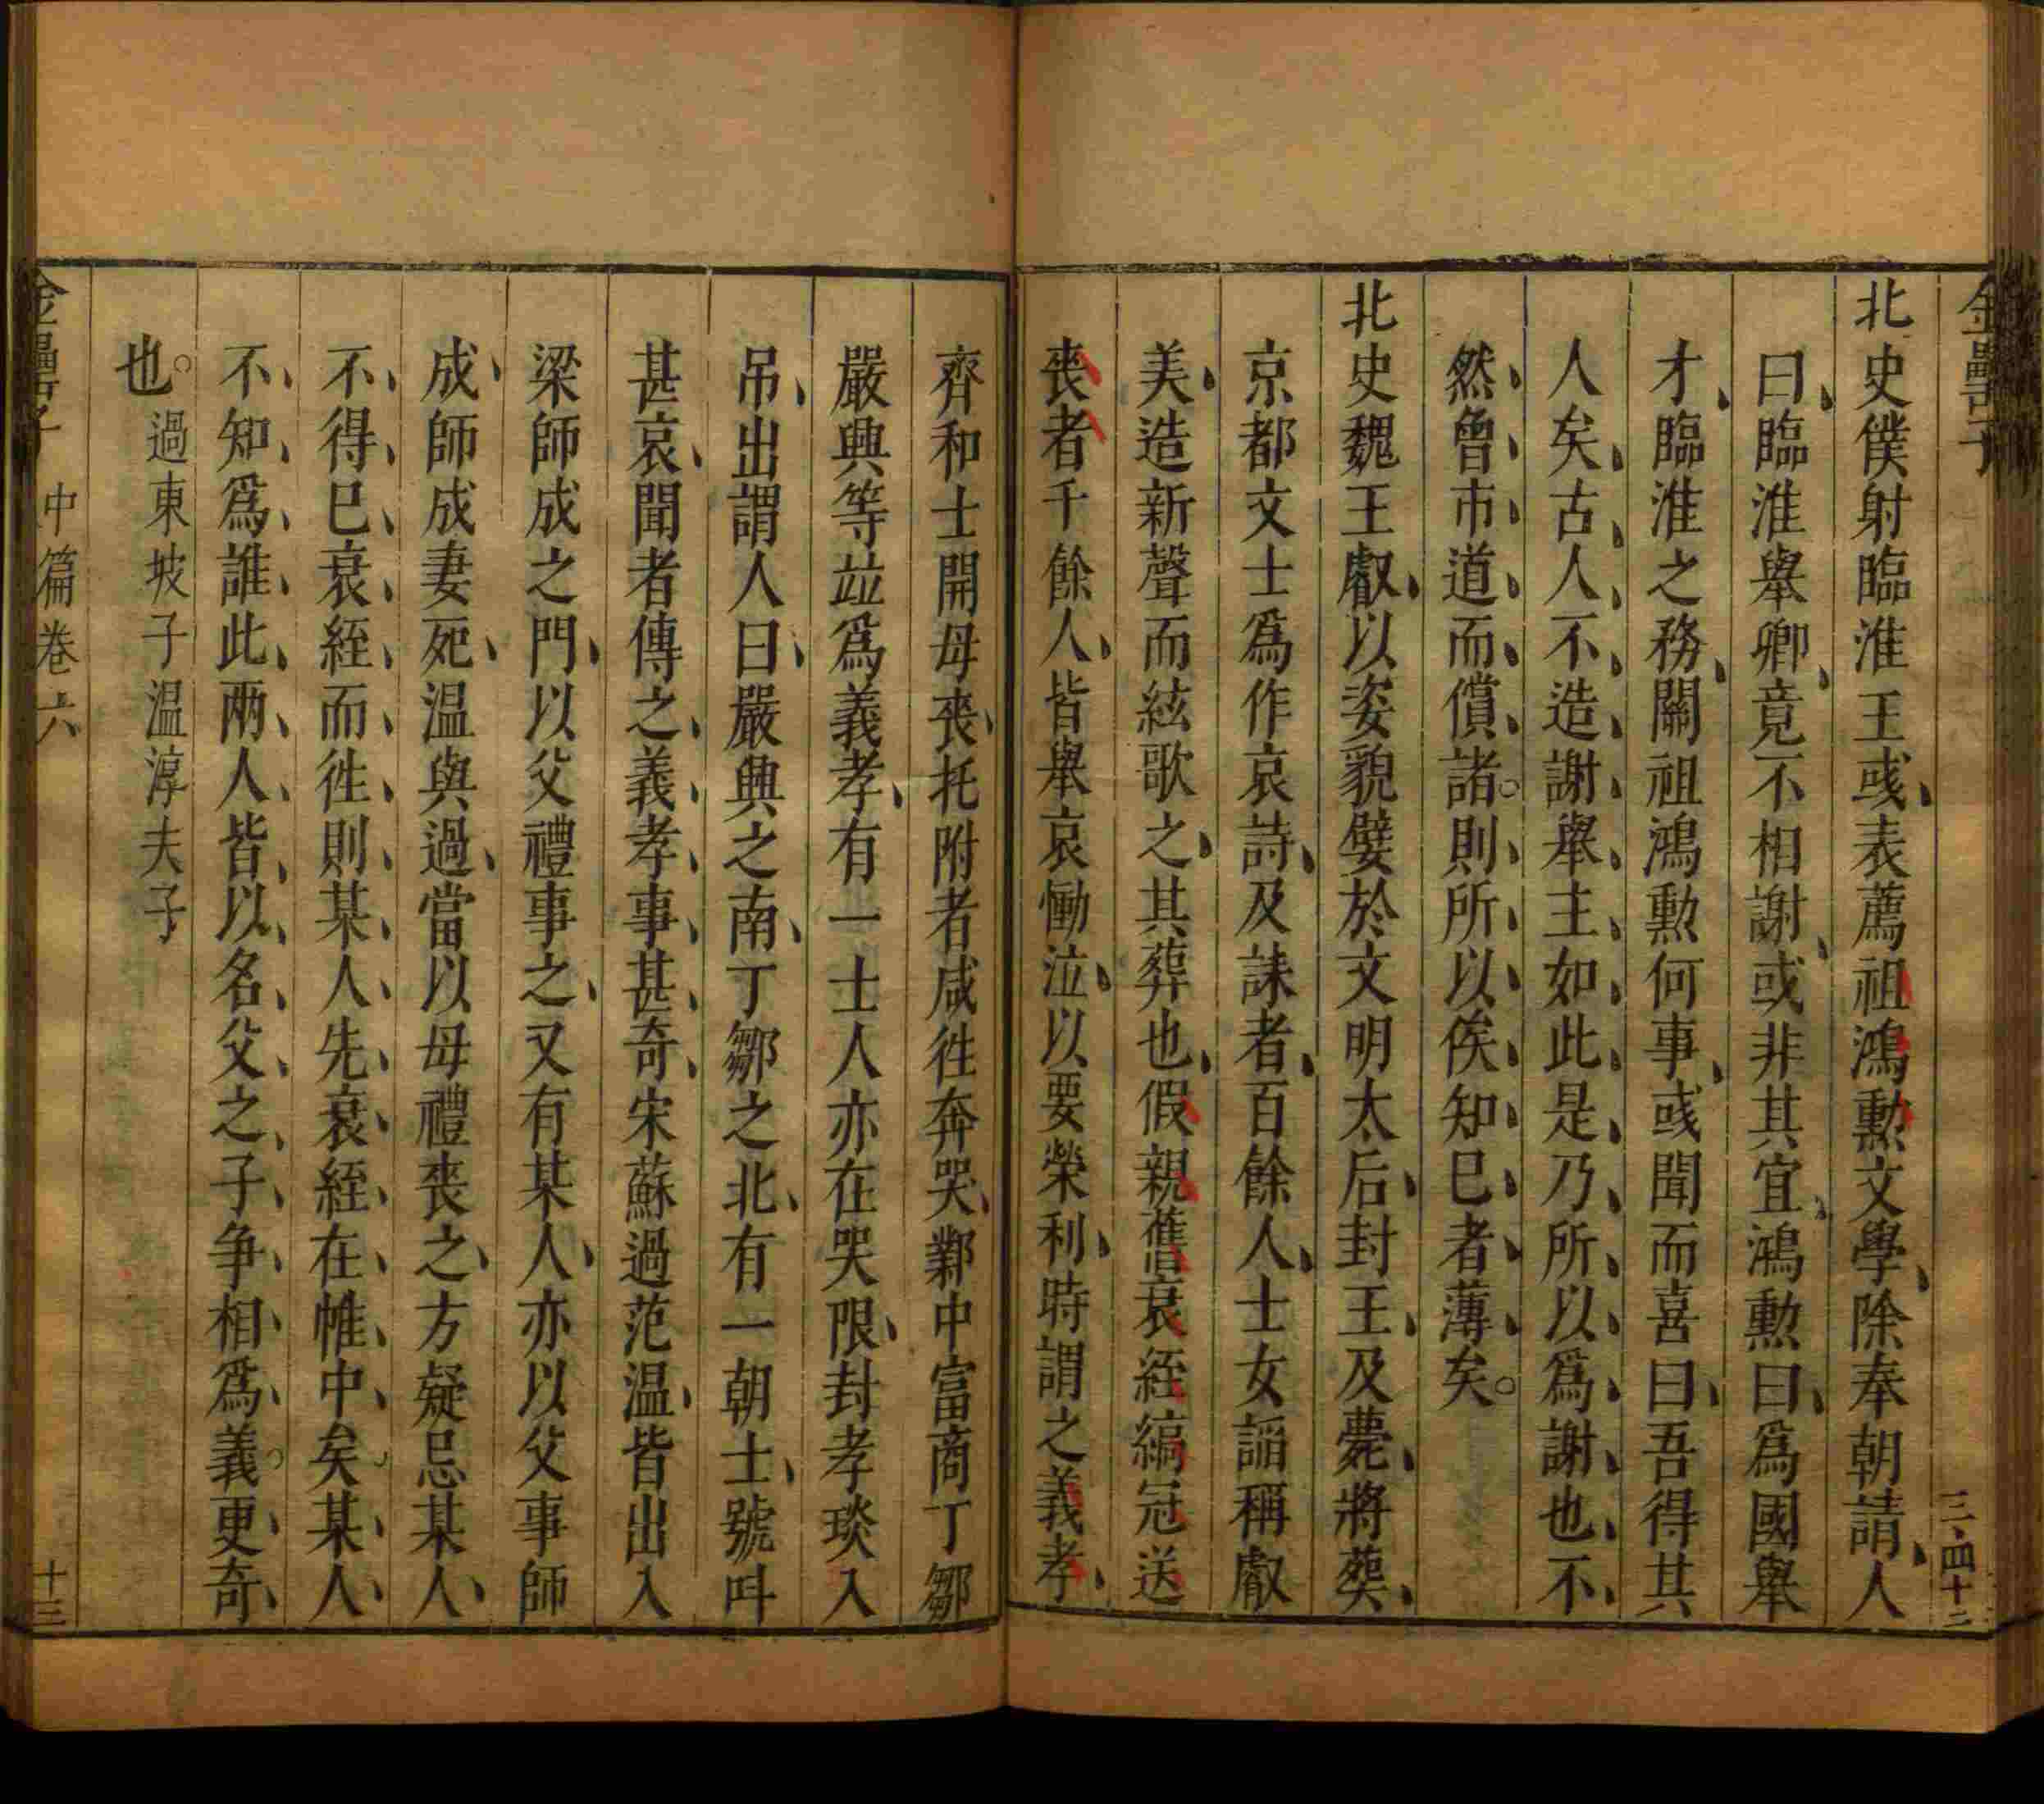 金罍子
三四十三
北史僕射臨淮王彧表薦祖鴻勲文學除奉朝請人
曰臨淮舉卿竟不相謝或非其宜鴻勲曰爲國舉
才臨淮之務關祖鴻勲何事彧聞而喜曰吾得其
人矣古人不造謝舉主如此是乃所以爲謝也不
然曾市道而償諸則所以俟知已者薄矣
北史魏王叡以姿貌嬖於文明太后封王及薨將葬
京都文士爲作哀詩及誄者百餘人士女謟稱叡
美造新聲而絃歌之其葬也假親舊衰絰縞冠送
喪者千餘人皆舉哀慟泣以要榮利時謂之義孝
齊和士開母喪托附者咸徃奔哭鄴中富商丁鄒
嚴興等竝爲義孝有一士人亦在哭限封孝琰入
吊出謂人曰嚴興之南丁鄒之北有一朝士號呌
甚哀聞者傳之義孝事甚奇宋蘇過范温皆出入
梁師成之門以父禮事之又有某人亦以父事師
成師成妻死温與過當以母禮喪之方疑忌某人
不得已衰絰而徃則某人先衰絰在帷中矣某人
不知爲誰此兩人皆以名父之子争相爲義更奇
也過東坡子温淳夫子
金罍子 中篇卷六 十三